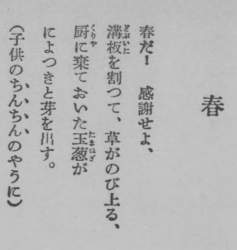 春
春だ！　感謝せよ、
溝板を割つて、草がのび上る、
厨に棄ておいた玉葱が
によつきと芽を出す。
(子供のちんちんのやうに)